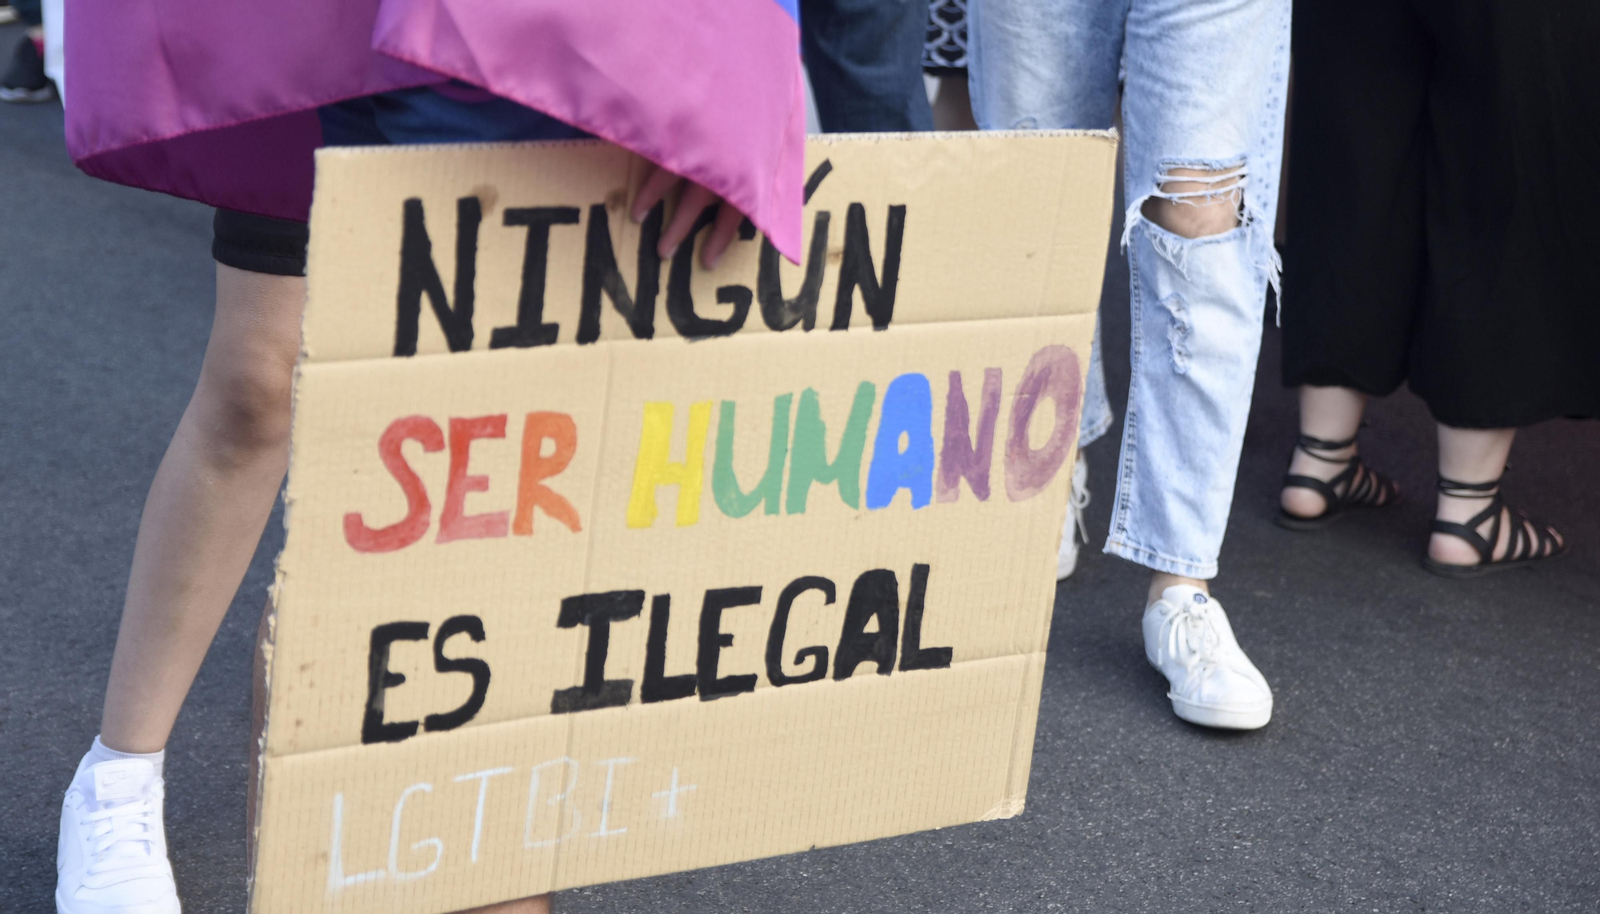 NINGÚN
SER HUMANO
ES ILEGAL
LGTBI+